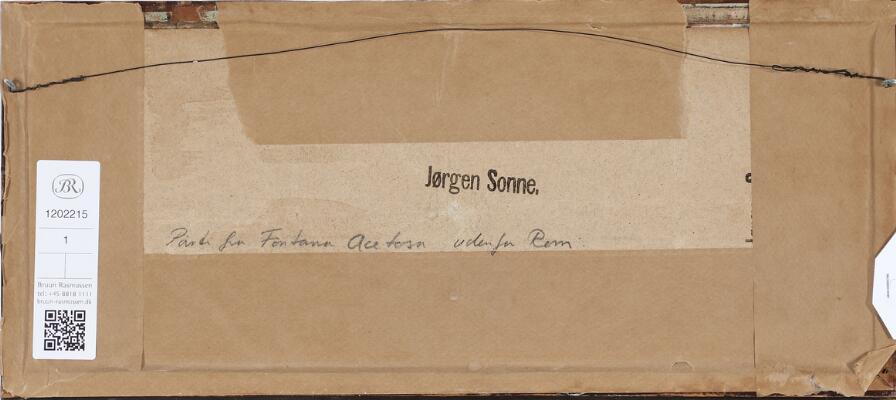 BR
1202215
1
Bruun Rasmussen
tel: +45 8818 1111
bruun-rasmussen.dk
Jørgen Sonne.
Parti fra Fontana Acetosa udenfor Rom.